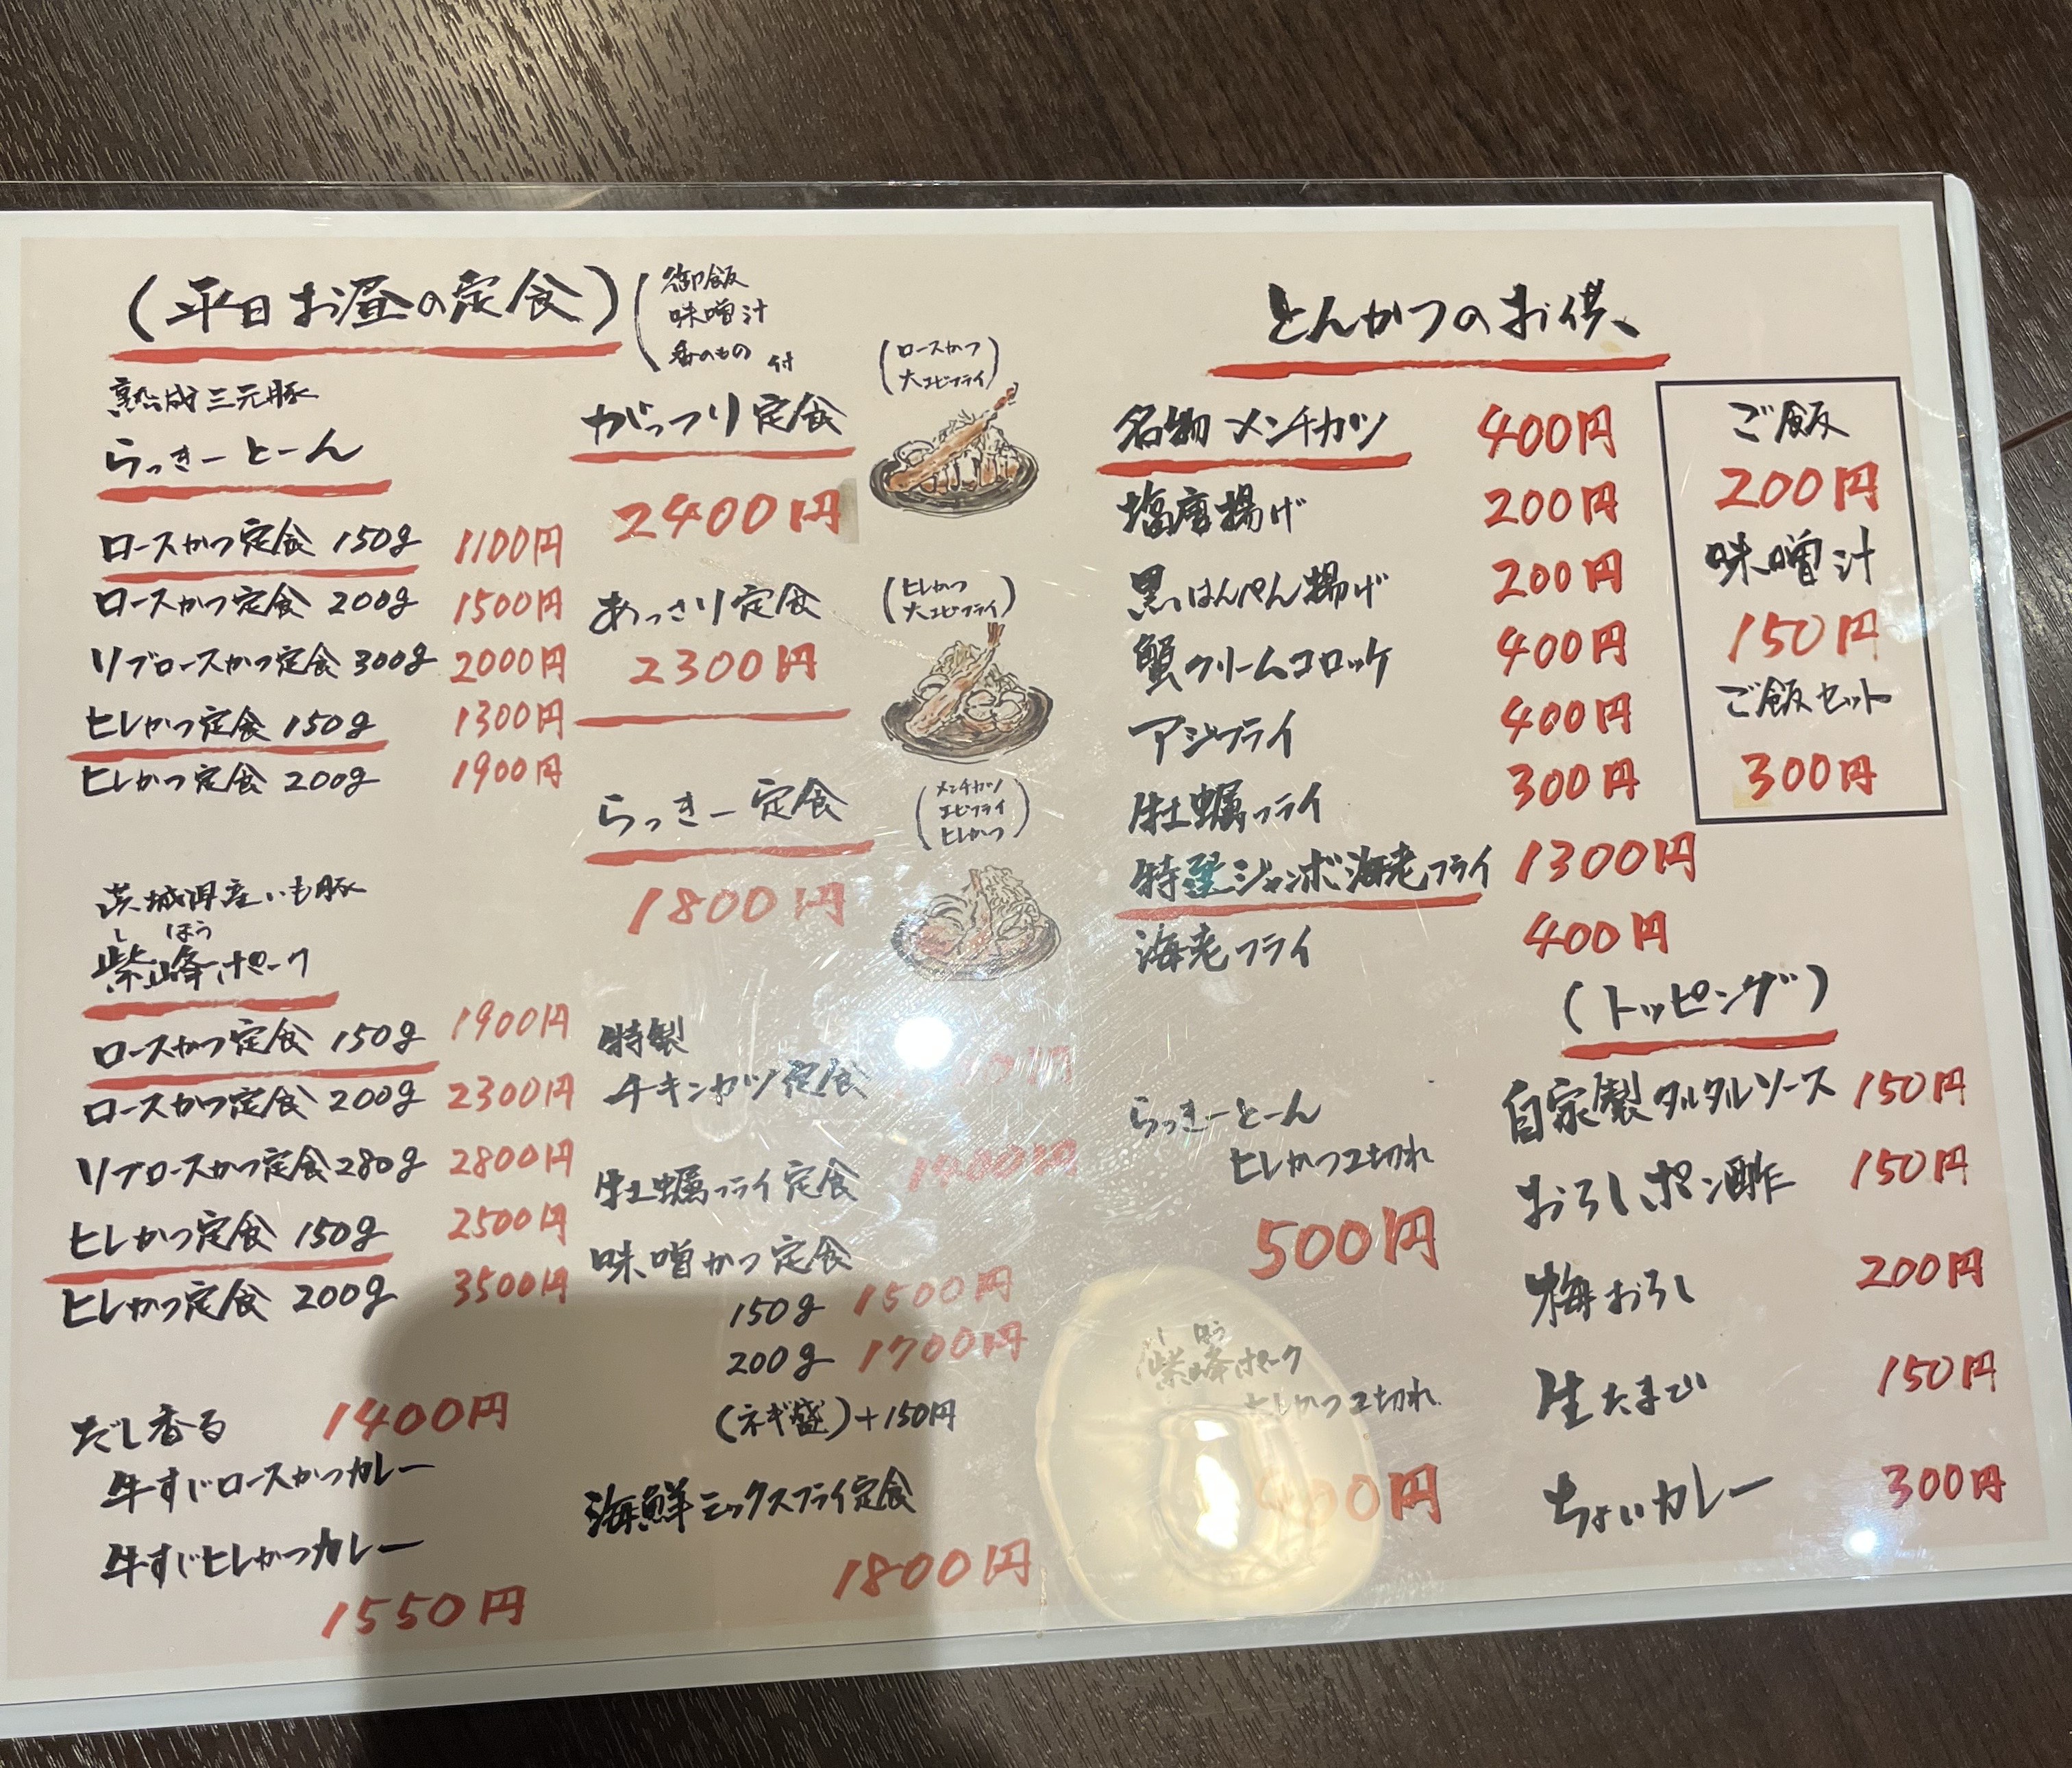 (平日お昼の定食)
(御飯
味噌汁
香のもの 付
熟成三元豚
らっきーとーん
ロースかつ定食 150g 1100円
ロースかつ定食 200g 1500円
リブロースかつ定食 300g 2000円
ヒレかつ定食 150g 1300円
ヒレかつ定食 200g 1900円
茨城県産いも豚
しほう
紫峰ポーク
ロースかつ定食 150g 1900円
ロースかつ定食 200g 2300円
リブロースかつ定食 280g 2800円
ヒレかつ定食 150g 2500円
ヒレかつ定食 200g 3500円
だし香る 1400円
牛すじロースかつカレー
牛すじヒレかつカレー
1550円
がっつり定食
(ロースかつ
大エビフライ)
2400円
あっさり定食
(ヒレかつ
大エビフライ)
2300円
らっきー定食
(メンチカツ
エビフライ
ヒレかつ)
1800円
特製
チキンカツ定食
牡蠣フライ定食
味噌かつ定食
150g 1500円
200g 1700円
(ネギ盛)+150円
海鮮ミックスフライ定食
1800円
とんかつのお供、
名物 メンチカツ 400円
塩唐揚げ 200円
黒はんぺん揚げ 200円
蟹クリームコロッケ 400円
アジフライ 400円
牡蠣フライ 300円
特選ジャンボ海老フライ 1300円
海老フライ 400円
ご飯
200円
味噌汁
150円
ご飯セット
300円
らっきーとーん
ヒレかつ2切れ
500円
しほう
紫峰ポーク
ヒレかつ2切れ
(トッピング)
自家製タルタルソース 150円
おろしポン酢 150円
梅おろし 200円
生たまご 150円
ちょいカレー 300円